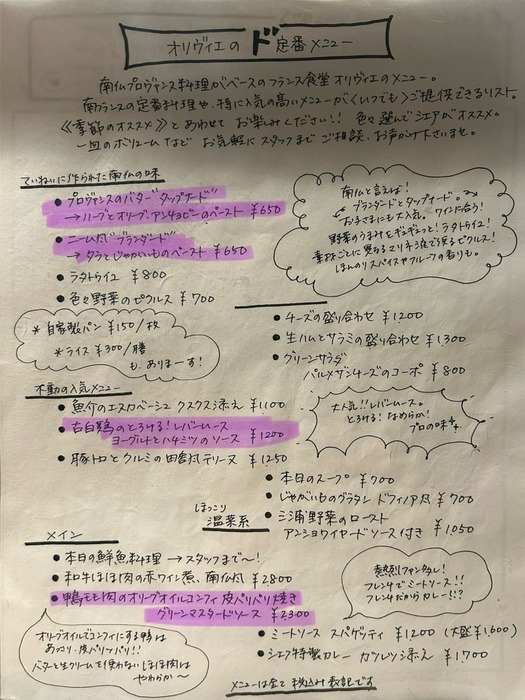 オリヴィエの ド定番メニュー
南仏プロヴァンス料理がベースのフランス食堂 オリヴィエのメニュー。
南フランスの定番料理や、特に人気の高いメニューが〈いつでも〉ご提供できるリスト。
《季節のオススメ》とあわせて お楽しみください!! 色々選んでシェアがオススメ。
一皿のボリュームなど お気軽にスタッフまで ご相談、お声がけ下さいませ。
ていねいに作られた南仏の味
● プロヴァンスのバター"タップナード"
→ハーブとオリーブ、アンチョビーのペースト ¥650
● ニーム風"ブランダード"
→タラとじゃがいものペースト ¥650
● ラタトゥイユ ¥800
● 色々野菜のピクルス ¥700
南仏と言えば!
ブランダードとタップナード。
お子さまにも大人気。ワインに合う!
野菜のうまみをぎゅぎゅっと!ラタトゥイユ!
素材ごとに異なるマリネ液で漬るピクルス!
ほんのりスパイスやフルーツの香りも。
* 自家製パン ¥150/枚
* ライス ¥300/膳
も、ありまーす!
● チーズの盛り合わせ ¥1200
● 生ハムとサラミの盛り合わせ ¥1,300
● グリーンサラダ
パルメザンチーズのコーポ ¥800
不動の人気メニュー
● 魚介のエスカベーシュ クスクス添え ¥1100
● 古白鶏のとろける!レバームース
ヨーグルトとハチミツのソース ¥1200
● 豚トロとクルミの田舎風テリーヌ ¥1250
大人気!!レバームース。
とろける!なめらか!
プロの味。
● 本日のスープ ¥700
● じゃがいものグラタン ドフィノア風 ¥700
● 三浦野菜のロースト
アンショワイヤードソース付き ¥1050
ほっこり
温菜系
メイン
● 本日の鮮魚料理 →スタッフまで〜!
● 和牛ほほ肉の赤ワイン煮、南仏風 ¥2800
● 鴨モモ肉のオリーブオイルコンフィ 皮パリパリ焼き
グリーンマスタードソース ¥2300
熱烈ファン多し!
フレンチでミートソース!!
フレンチだからカレー!?
オリーブオイルでコンフィにする鴨は
あっさり・皮パリッパリ!!
バターと生クリームを使わないほほ肉は
やわらか〜
● ミートソース スパゲッティ ¥1200 (大盛¥1,600)
● シェフ特製カレー カツレツ添え ¥1700
メニューは全て税込み表記です